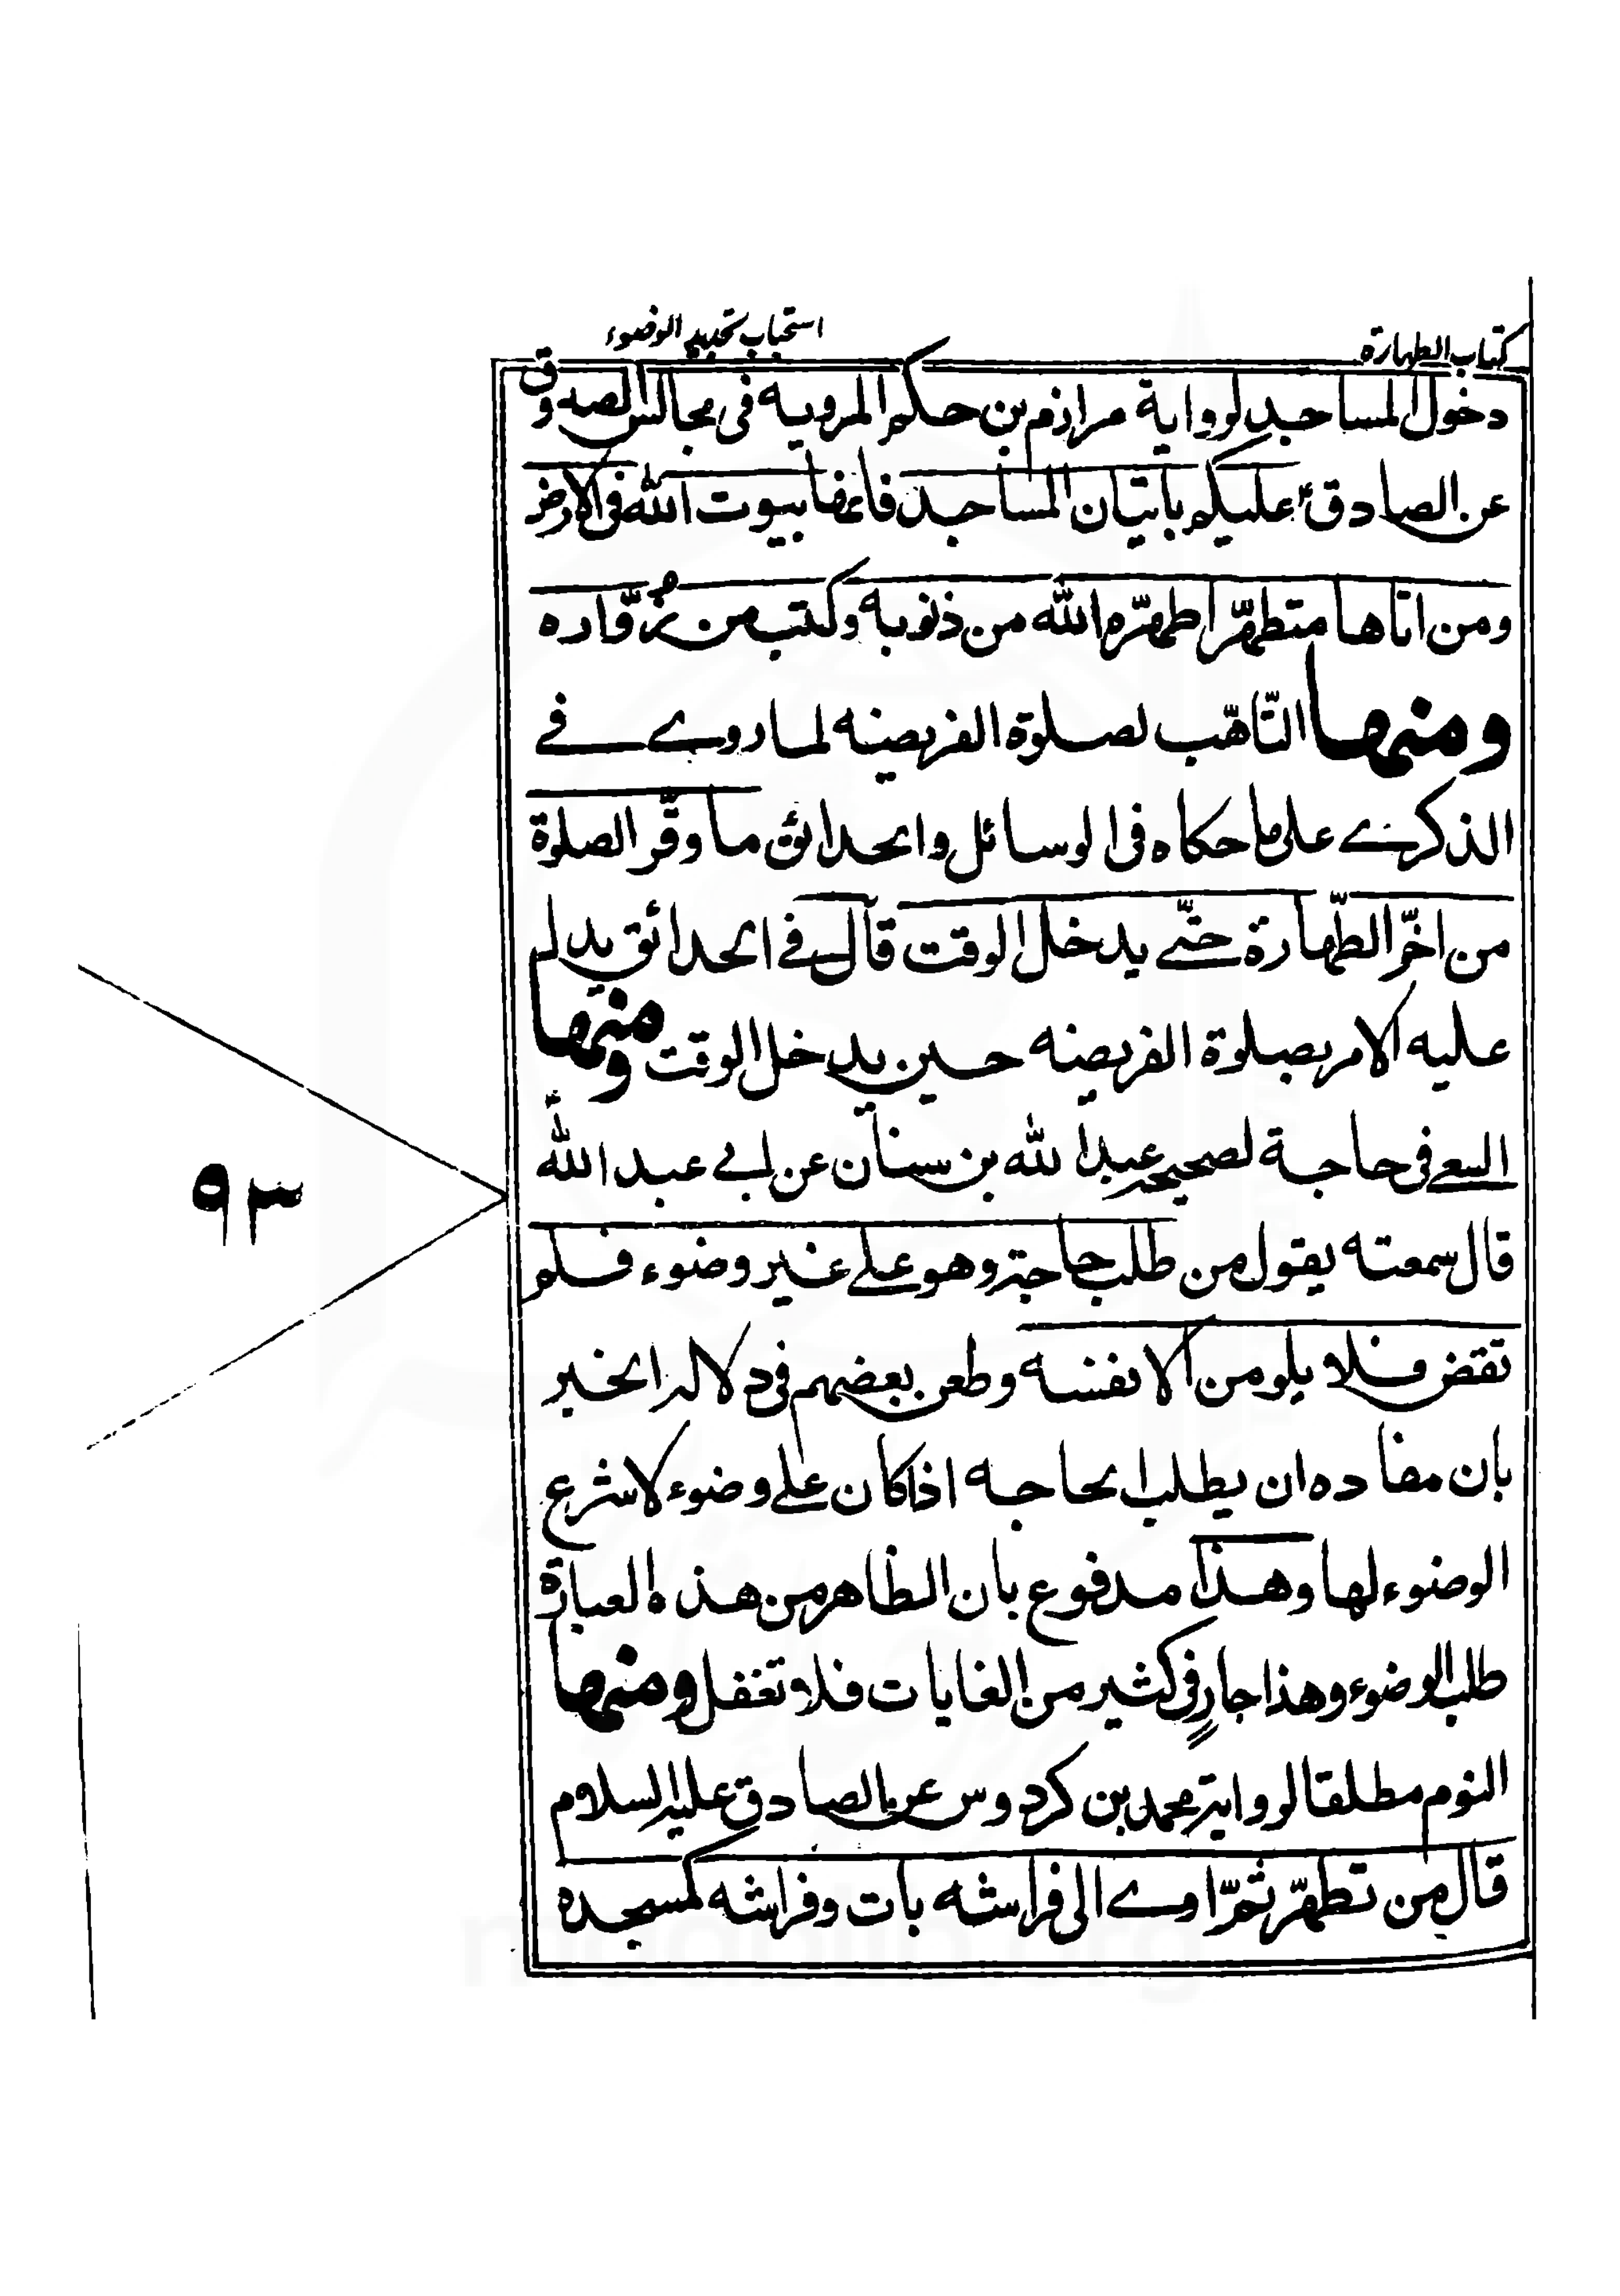 كتاب الطهارة
استحباب تجديد الوضوء
دخول المساجد لرواية مرازم بن حكم المرويه فى مجالس الصدوق
عن الصادق ع عليكم باتيان المساجد فانها بيوت الله فى الارض
ومن اتاها متطهّرا طهّره الله من ذنوبه وكتب من زُوّاره
ومنها التّاهّب لصلوة الفريضه لما روى فى
الذكرى على ما حكاه فى الوسائل والحدائق ما وقّر الصلوة
من اخّر الطّهارة حتّى يدخل الوقت قال فى الحدائق يدل
عليه الامر بصلوة الفريضه حين يدخل الوقت ومنها
السعى فى حاجة لصحيحه عبد الله بن سنان عن ابى عبد الله ع
قال سمعته يقول من طلب حاجته وهو على غير وضوء فلم
تقض فلا يلومن الا نفسه وطعن بعضهم فى دلاله الخبر
بان مفاده ان يطلب الحاجه اذا كان على وضوء لا شرع
الوضوء لها وهذا مدفوع بان الظاهر من هذه العبارة
طلب الوضوء وهذا جارٍ فى كثير من الغايات فلا تغفل ومنها
النوم مطلقا لروايته محمد بن كردوس عن الصادق عليه السلام
قال من تطهّر ثمّ اوى الى فراشه بات وفراشه كمسجده
٩٣